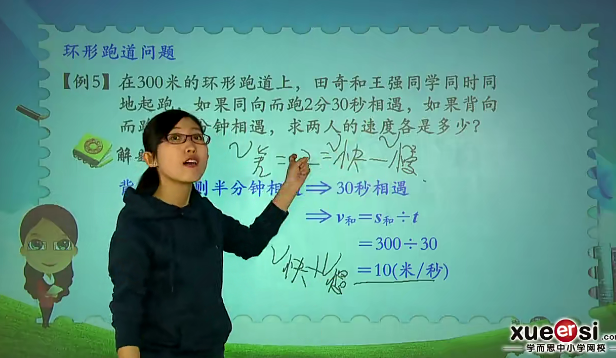 环形跑道问题
【例5】在300米的环形跑道上，田奇和王强同学同时同
地起跑，如果同向而跑2分30秒相遇，如果背向
而跑 分钟相遇，求两人的速度各是多少？
解
V差=2=V快-V慢
背 则半分钟相 ⇒ 30秒相遇
⇒ v和=s和÷t
=300÷30
V快+V慢 =10(米/秒)
xueersi.co
学而思中小学网校